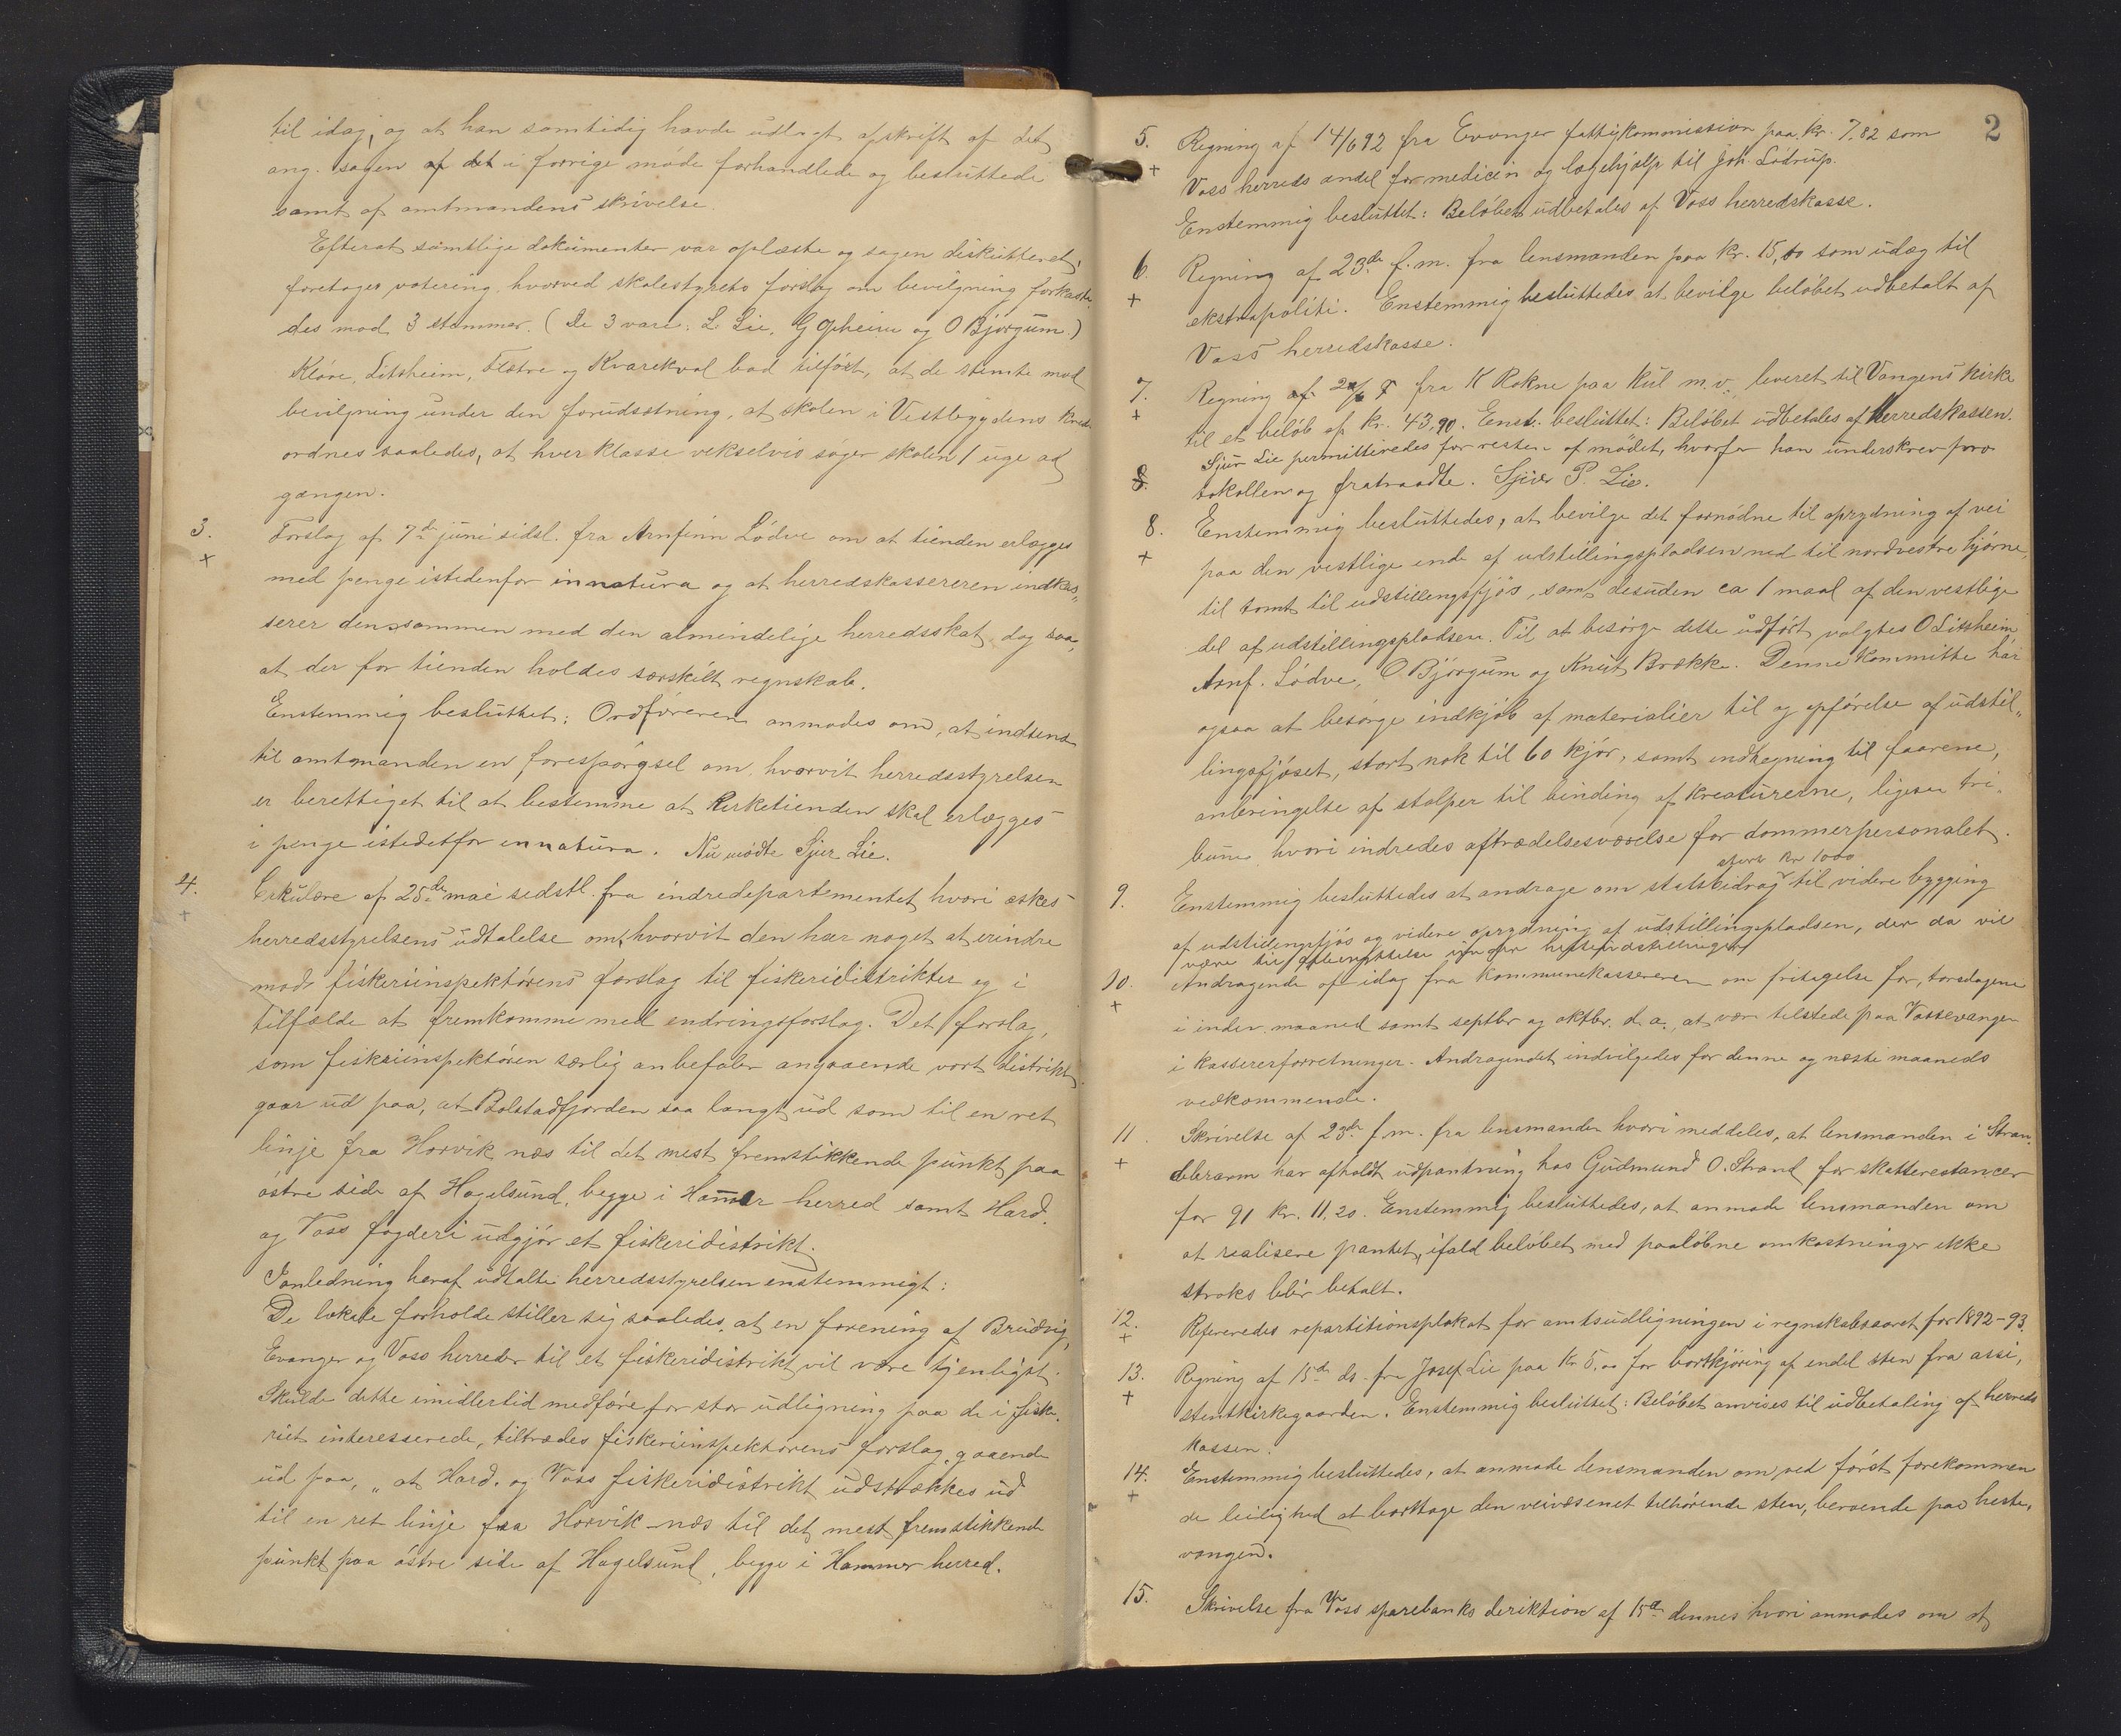 til idag, og at han samtidig havde udlagt afskrift af det
ang. sagen af det i forrige møde forhandlede og besluttede
samt af amtmandens skrivelse.
Efterat samtlige dokumenter var oplæste og sagen diskutteret,
foretoges votering, hvorved skolestyrets forslag om bevilgning forkaste-
des mod 3 stemmer. (De 3 vare: L. Lie, G Opheim og O Bjørgum.)
Kløve, Litsheim, Flatre og Kvarekval bad tilført, at de stemte mod
bevilgning under den forudsætning, at skolen i Vestbygdens kreds
ordnes saaledes, at hver klasse vekselvis søger skolen 1 uge ad
gangen.
3. Forslag af 7de juni sidstl. fra Arnfinn Lødve om at tienden erlægges
+ med penge istedenfor innatura og at herredskassereren indkas„
serer den sammen med den almindelige herredsskat dog saa,
at der for tienden holdes særskilt regnskab.
Enstemmig besluttet: Ordføreren anmodes om, at indsende
til amtmanden en forespørgsel om, hvorvit herredsstyrelsen
er berettiget til at bestemme at Kirketienden skal erlægges
i penge istedetfor innatura. Nu mødte Sjur Lie.
4. Cirkulære af 25de mai sidstl. fra indredepartementet hvori æskes
+ herredsstyrelsens udtalelse om, hvorvit den har noget at erindre
mod fiskeriinspektørens forslag til fiskeridistrikter og i
tilfælde at fremkomme med endringsforslag. Det forslag,
som fiskeriinspektøren særlig anbefaler angaaende vort distrikt
gaar ud paa, at Bolstadfjorden saa langt ud som til en ret
linje fra Horvik næs til det mest fremstikkende punkt paa
østre side af Hagelsund, begge i Hammer herred samt Hard.
og Voss fogderi udgjør et fiskeridistrikt.
I anledning heraf udtalte herredsstyrelsen enstemmigt:
De lokale forholde stiller sig saaledes, at en forening af Bruvig,
Evanger og Voss herreder til et fiskeridistrikt vil være tjenligst.
Skulde dette imidlertid medføre for stor udligning paa de i fiske„
riet interesserede, tiltrædes fiskeriinspektørens forslag, gaaende
ud paa, „at Hard. og Voss fiskeridistrikt udstrækkes ud
til en ret linje fra Horvik-næs til det mest fremstikkende
punkt paa østre side af Hagelsund, begge i Hammer herred.
2
5. Regning af 14/6 92 fra Evanger fattigkommission paa kr. 7.82 som
+ Voss herreds andel for medicin og lægehjælp til Joh. Lødrup.
Enstemmig besluttet: Beløbet udbetales af Voss herredskasse.
6. Regning af 23de f.m. fra lensmanden paa kr. 15,00 som udlæg til
+ ekstrapoliti. Enstemmig besluttedes at bevilge beløbet udbetalt af
Voss herredskasse.
7. Regning af fra K Rokne paa Kul m.v. leveret til Vangens Kirke
+ til et beløb af Kr. 43,90. Enst. besluttet: Beløbet udbetales af Herredskassen.
Sjur Lie permitteredes for resten af mødet, hvorfor han underskrev pro-
8. tokollen og fratraadte. Sjur P. Lie.
8. Enstemmig besluttedes, at bevilge det fornødne til oprydning af vei
+ paa den vestlige ende af udstillingspladsen ned til nordvestre hjørne,
til tomt til udstillingsfjøs, samt desuden ca 1 maal af den vestlige
del af udstillingspladsen. Til at besørge dette udført valgtes O Litsheim
Arnf. Lødve, O. Bjørgum og Knut Brække. Denne Kommitte har
ogsaa at besørge indkjøb af materialier til og opførelse af udstil„
lingsfjøset, stort nok til 60 kjør, samt indhegning til faarene,
anbringelse af stolper til binding af kreaturerne, ligesaa tri„
bune, hvori indredes aftrædelsesværelse for dommerpersonalet.
stort kr 1000
9. Enstemmig besluttedes at andrage om statsbidrag til videre bygging
af udstillingsfjøs og videre oprydning af udstillingspladsen, der da vil
være til
10. Andragende af idag fra Kommunekassereren om fritagelse for, torsdagene
+ i inden. maaned samt septbr og oktbr. d.a., at være tilstede paa Vossevangen
i kassererforretninger. Andragendet indvilgedes for denne og næste maaneds
vedkommende.
11. Skrivelse af 23de f.m. fra lensmanden hvori meddeles, at lensmanden i Stran„
+ debarm har afholdt udpantning hos Gudmund O. Strand for skatterestancer
for 91 kr. 11.20. Enstemmig besluttedes, at anmode lensmanden om
at realisere pantet, ifald beløbet med paaløbne omkostninger ikke
straks blir betalt.
12. Refereredes repartitionsplakat for amtsudligningen i regnskabsaaret for 1892-93.
+
13. Regning af 15de ds. fra Josef Lie paa Kr. 5,00 for bortkjøring af endel sten fra assi,
+ stentkirkegaarden. Enstemmig besluttet: Beløbet anvises til udbetaling af herreds
kassen.
14. Enstemmig besluttedes, at anmode lensmanden om ved først forekommen
+ de leilighed at borttage den veivæsenet tilhørende sten, beroende paa heste,
vangen.
15. Skrivelse fra Voss sparebanks direktion af 15de dennes hvori anmodes om at